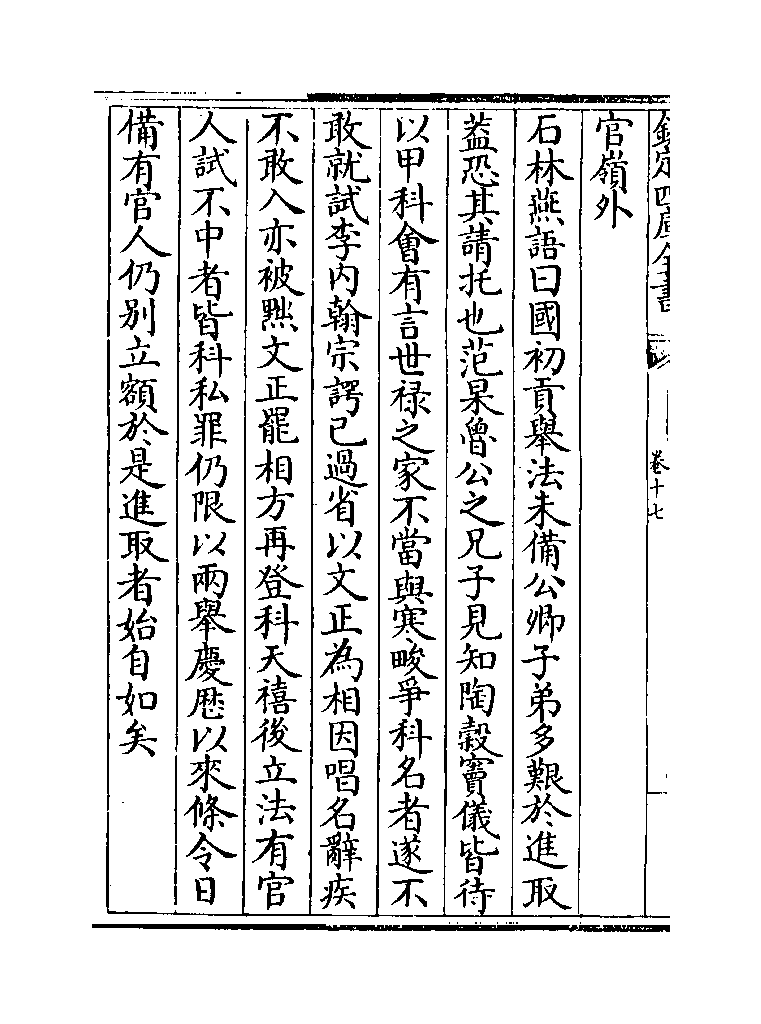 欽定四庫全書
卷十七
官嶺外
石林燕語曰國初貢舉法未備公卿子弟多艱於進取
葢恐其請托也范杲魯公之兄子見知陶縠竇儀皆待
以甲科會有言世禄之家不當與寒畯爭科名者遂不
敢就試李内翰宗諤已過省以文正為相因唱名辭疾
不敢入亦被黜文正罷相方再登科天禧後立法有官
人試不中者皆科私罪仍限以兩舉慶厯以來條令日
備有官人仍别立額於是進取者始自如矣